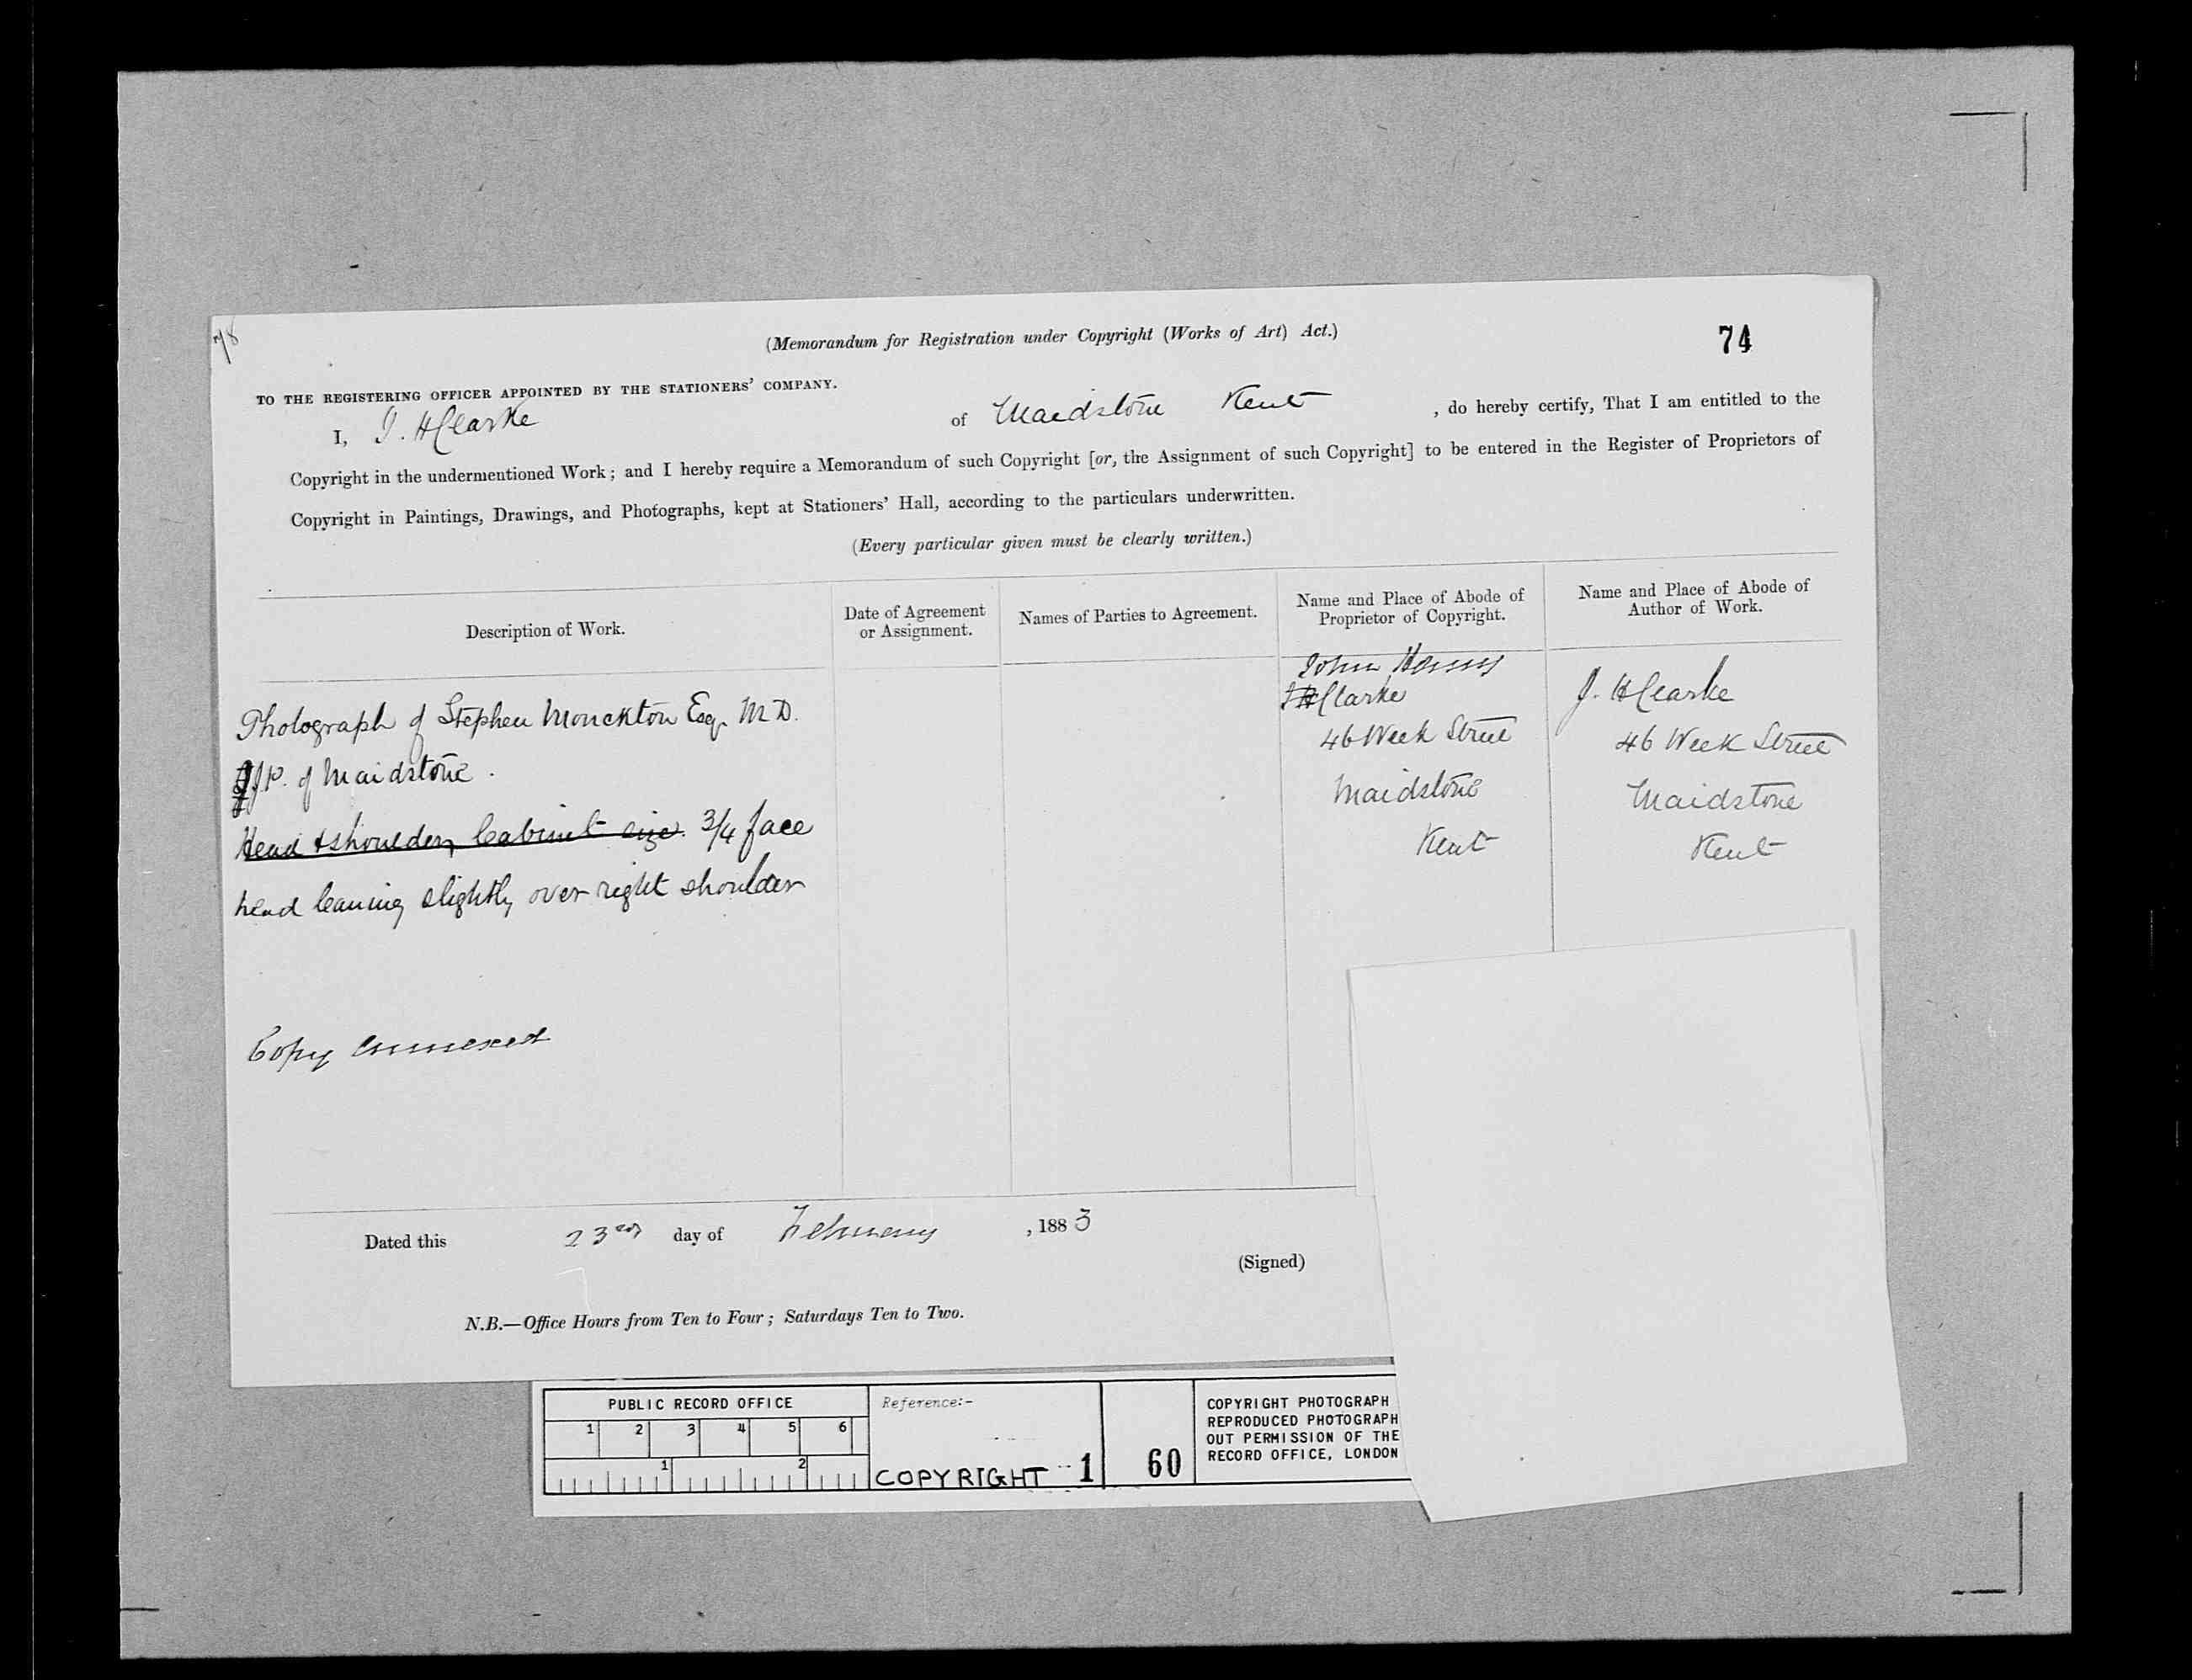 (Memorandum for Registration under Copyright (Works of Art) Act.)
74
TO THE REGISTERING OFFICER APPOINTED BY THE STATIONERS' COMPANY.
I, J. H Clarke of Maidstone Kent , do hereby certify, That I am entitled to the
Copyright in the undermentioned Work; and I hereby require a Memorandum of such Copyright [or, the Assignment of such Copyright] to be entered in the Register of Proprietors of
Copyright in Paintings, Drawings, and Photographs, kept at Stationers' Hall, according to the particulars underwritten.
(Every particular given must be clearly written.)
Description of Work.
Date of Agreement
or Assignment.
Names of Parties to Agreement.
Name and Place of Abode of
Proprietor of Copyright.
Name and Place of Abode of
Author of Work.
Photograph of Stephen Monckton Esq. M.D.
J.P. of Maidstone.
Head & shoulders, Cabinet size. 3/4 face
head leaning slightly over right shoulder
Copy annexed
John Henry
J H Clarke
46 Week Street
Maidstone
Kent
J. H Clarke
46 Week Street
Maidstone
Kent
Dated this 23rd day of February , 1883
(Signed)
N.B.—Office Hours from Ten to Four; Saturdays Ten to Two.
PUBLIC RECORD OFFICE
1 2 3 4 5 6
1 2
Reference:-
COPYRIGHT 1
60
COPYRIGHT PHOTOGRAPH
REPRODUCED PHOTOGRAPH
OUT PERMISSION OF THE
RECORD OFFICE, LONDON